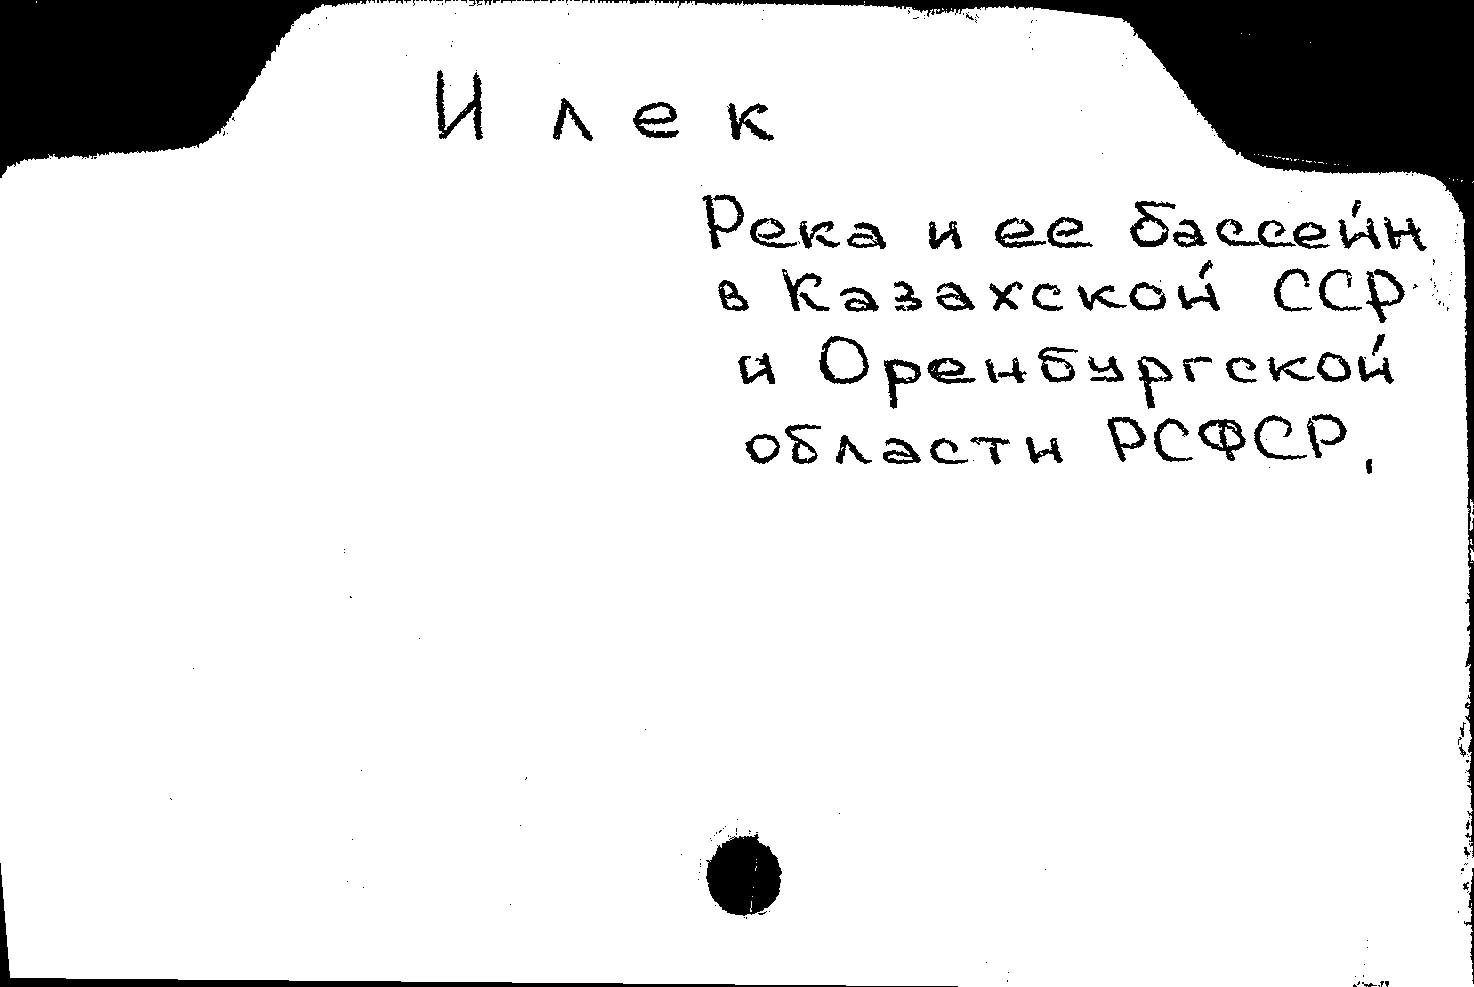 Илек
Река и ее бассейн
в Казахской ССР
и Оренбургской
области РСФСР.